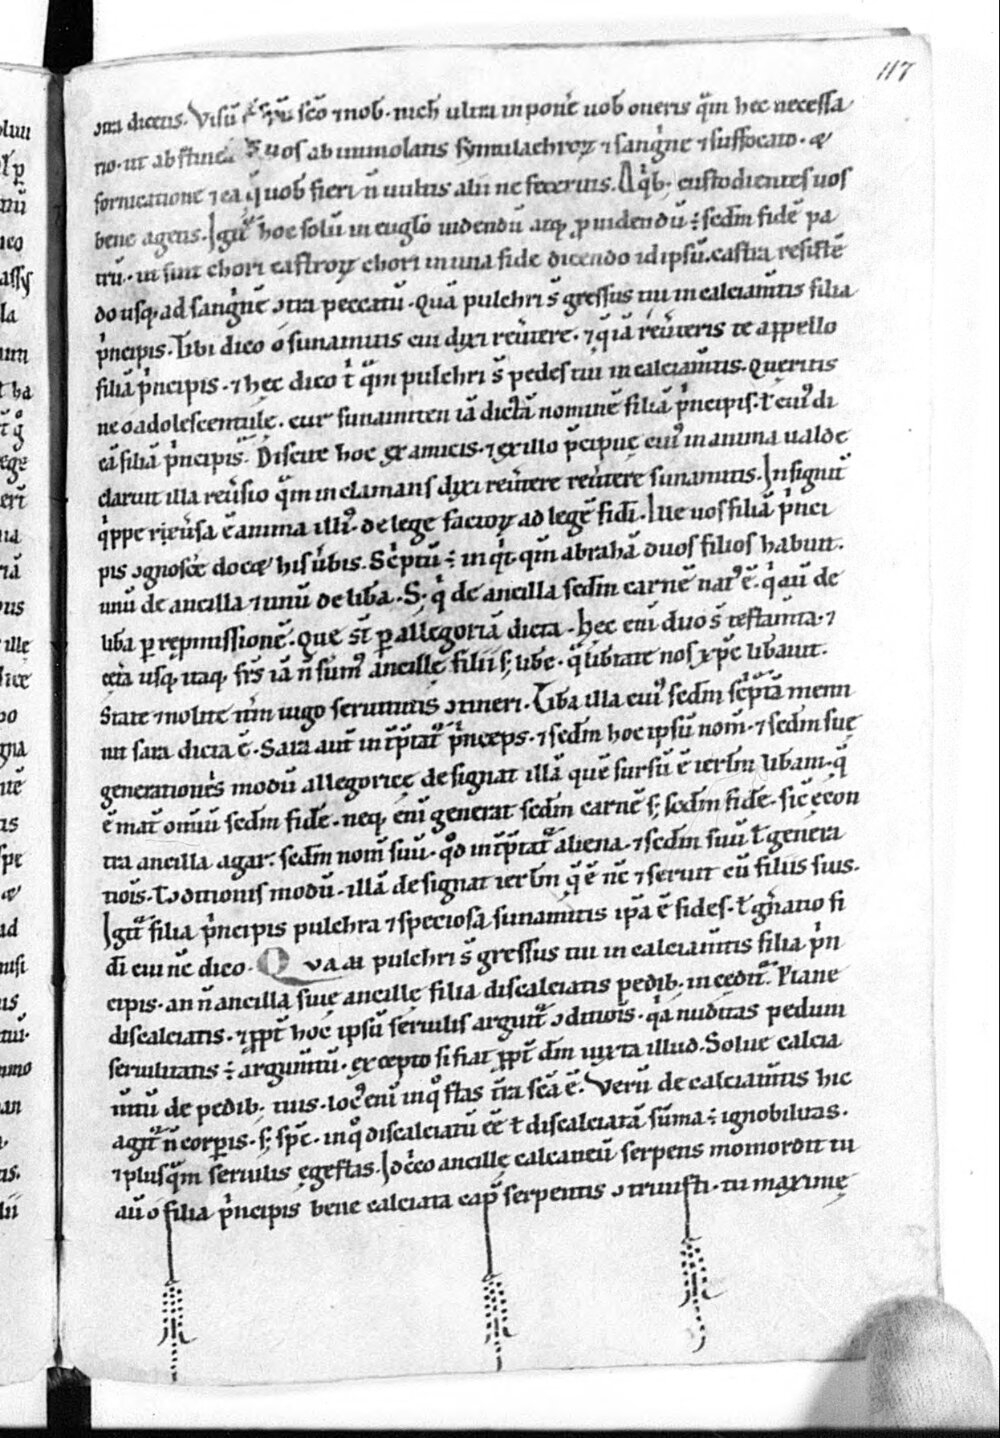 117
ɔtra dicens. Visū ē spū scō ⁊ nob̄. nich ultra inponē uob̄ oneris q̄m hec necessa
rio. ut abstinea uos ab immolatis symulachroꝝ ⁊ sanġne ⁊ suffocato. &
fornicatione ⁊ ea q̄ uob̄ fieri n̄ uultis alii ne feceritis. A q̇b; custodientes uos
bene agetis. Igit̄ hoc solū in euglō uidendū atq; ꝓuidendū ÷ scd̄m fidē pa
trū. ut sint chori castroꝝ chori in una fide dicendo idipsū. castra resistē
do usq; ad sanġnē ɔtra peccatū. Quā pulchri s̄ gressus tui in calciam̄tis filia
p̄ncipis. Tibi dico o sunamitis cui dixi reu̇tere. ⁊ q̇a reu̇teris te appello
filiā p̄ncipis. ⁊ hec dico t̄ q̄m pulchri s̄ pedes tui in calciam̄tis. Queritis
ne o adolescentulę. cur sunamiten iā dictā nominē filiā p̄ncipis. t̄ cui⁹ di
cā filiā p̄ncipis. Discite hoc ex amicis. ⁊ ex illo p̄cipuę cui⁹ in anima ualde
claruit illa reu̇sio q̄m inclamans dixi reu̇tere reu̇tere sunamitis. Insignit̄
q̇ppe reu̇sa ē anima illi⁹. de lege factoꝝ ad legē fidi. Ille uos filiā p̄nci
pis ɔgnoscē docet his u̇bis. Sc̄ptū ÷ inq̇t. qm̄ abrahā duos filios habuit.
unū de ancilla ⁊ unū de lib̄a. S; q̇ de ancilla scd̄m carnē nat⁹ ē. q̇ aū de
lib̄a per rep̄missionē. Que st̄ per allegoriā dicta. Hec eni duo s̄ testam̄ta. ⁊
cet̄a usq; itaq; frs̄ iā n̄ sum⁹ ancillę filii s; libe. q̄ lib̄tate nos xp̄c lib̄auit.
State ⁊ nolite it̄m iugo seruitutis ɔtineri. Lib̄a illa cui⁹ scd̄m sc̄ptā memi
nit sara dicta ē. Sara aut̄ int̄ptat̄ p̄nceps. ⁊ scd̄m hoc ipsū nom̄. ⁊ scd̄m suę
generationes modū allegoricę designat illā quę sursū ē ierłm lib̄am. q̄
ē mat̄ omiū scd̄m fidē. neq; eni generat scd̄m carnē s; scd̄m fidē. sic ⁊ econ
tra ancilla agar. scd̄m nom̄ suū. qd̄ int̄ptat̄ aliena. ⁊ scd̄m suū t̄ genera
tiois. t̄ ɔditionis modū. illā designat ierłm q̄ ē nc̄ ⁊ seruit cū filiis suis.
Igit̄ filia p̄ncipis pulchra ⁊ speciosa sunamitis ip̄a ē fides. t̄ gn̄atio fi
di cui nc̄ dico. Quam pulchri s̄ gressus tui in calciam̄tis filia p̄n
cipis. an n̄ ancilla siue ancillę filia discalciatis pedib; incedit̄. Plane
discalciatis. ⁊ ꝓpt̄ hoc ipsū seruilis arguit̄ ɔditiois. q̇a nuditas pedum
seruilitatis ÷ argum̄tū. excepto si fiat ꝓpt̄ dm̄ iuxta illud. Solue calcia
m̄tū de pedib; tuis. loc⁹ eni inq̇ stas t̄ra scā ē. Verū de calciam̄tis hic
agit̄ n̄ corpis. s; spc̄. inq̇ discalciatū eē t̄ discalciatā sūma ÷ ignobilitas.
⁊ plusq̄m seruilis egestas. Idc̄co ancillę calcaneū serpens momordit tu
aū o filia p̄ncipis bene calciata cap̄ serpentis ɔtriuisti. tu maximę